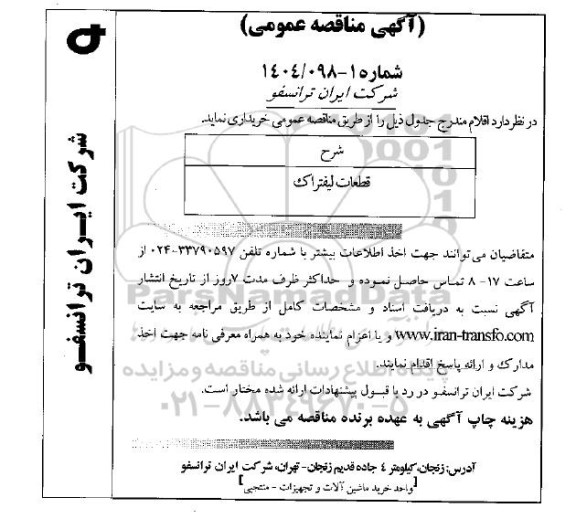 (آگهی مناقصه عمومی)
شماره ۱-۱۴۰۴/۰۹۸
شرکت ایران ترانسفو
در نظر دارد اقلام مندرج جدول ذیل را از طریق مناقصه عمومی خریداری نماید.
شرح
قطعات لیفتراک
متقاضیان می توانند جهت اخذ اطلاعات بیشتر با شماره تلفن ۳۳۷۹۰۵۹۷-۰۲۴ از
ساعت ۱۷- ۸ تماس حاصل نموده و حداکثر ظرف مدت ۷روز از تاریخ انتشار
آگهی نسبت به دریافت اسناد و مشخصات کامل از طریق مراجعه به سایت
www.iran-transfo.com و یا اعزام نماینده خود به همراه معرفی نامه جهت اخذ
مدارک و ارائه پاسخ اقدام نمایند.
شرکت ایران ترانسفو در رد یا قبول پیشنهادات ارائه شده مختار است.
هزینه چاپ آگهی به عهده برنده مناقصه می باشد.
آدرس: زنجان، کیلومتر ٤ جاده قدیم زنجان- تهران، شرکت ایران ترانسفو
[واحد خرید ماشین آلات و تجهیزات - منتجبی]
شرکت ایران ترانسفو
ParsNamadData
پایگاه اطلاع رسانی مناقصه و مزایده
۰۲۱-۸۸۳۴۹۶۷۰-۵